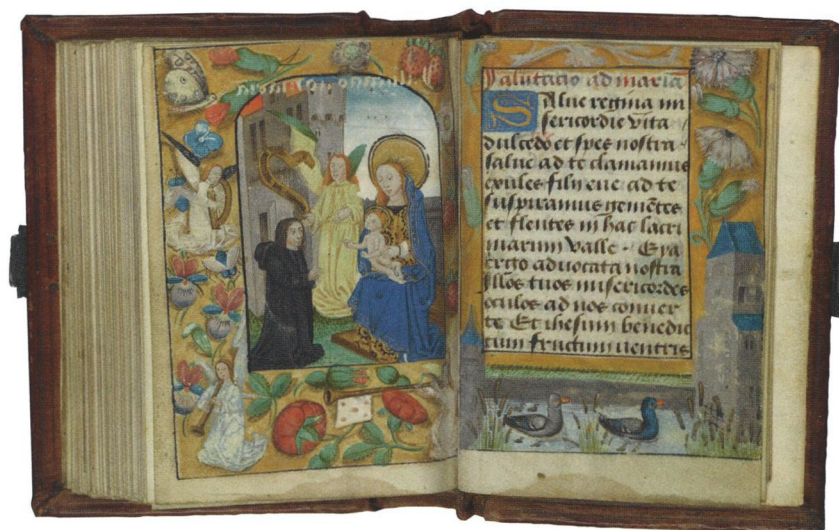 Salutacio ad mariã
Salue regina mi
sericordie vita
dulcedo et spes nostra
salue ad te clamamus
exules filij eue ad te
suspiramus gemẽtes
et flentes in hac lacri
marum valle · Eya
ergo aduocata nostra
illos tuos misericordes
oculos ad nos conuer
te Et ihesum benedic
tum fructum uentris